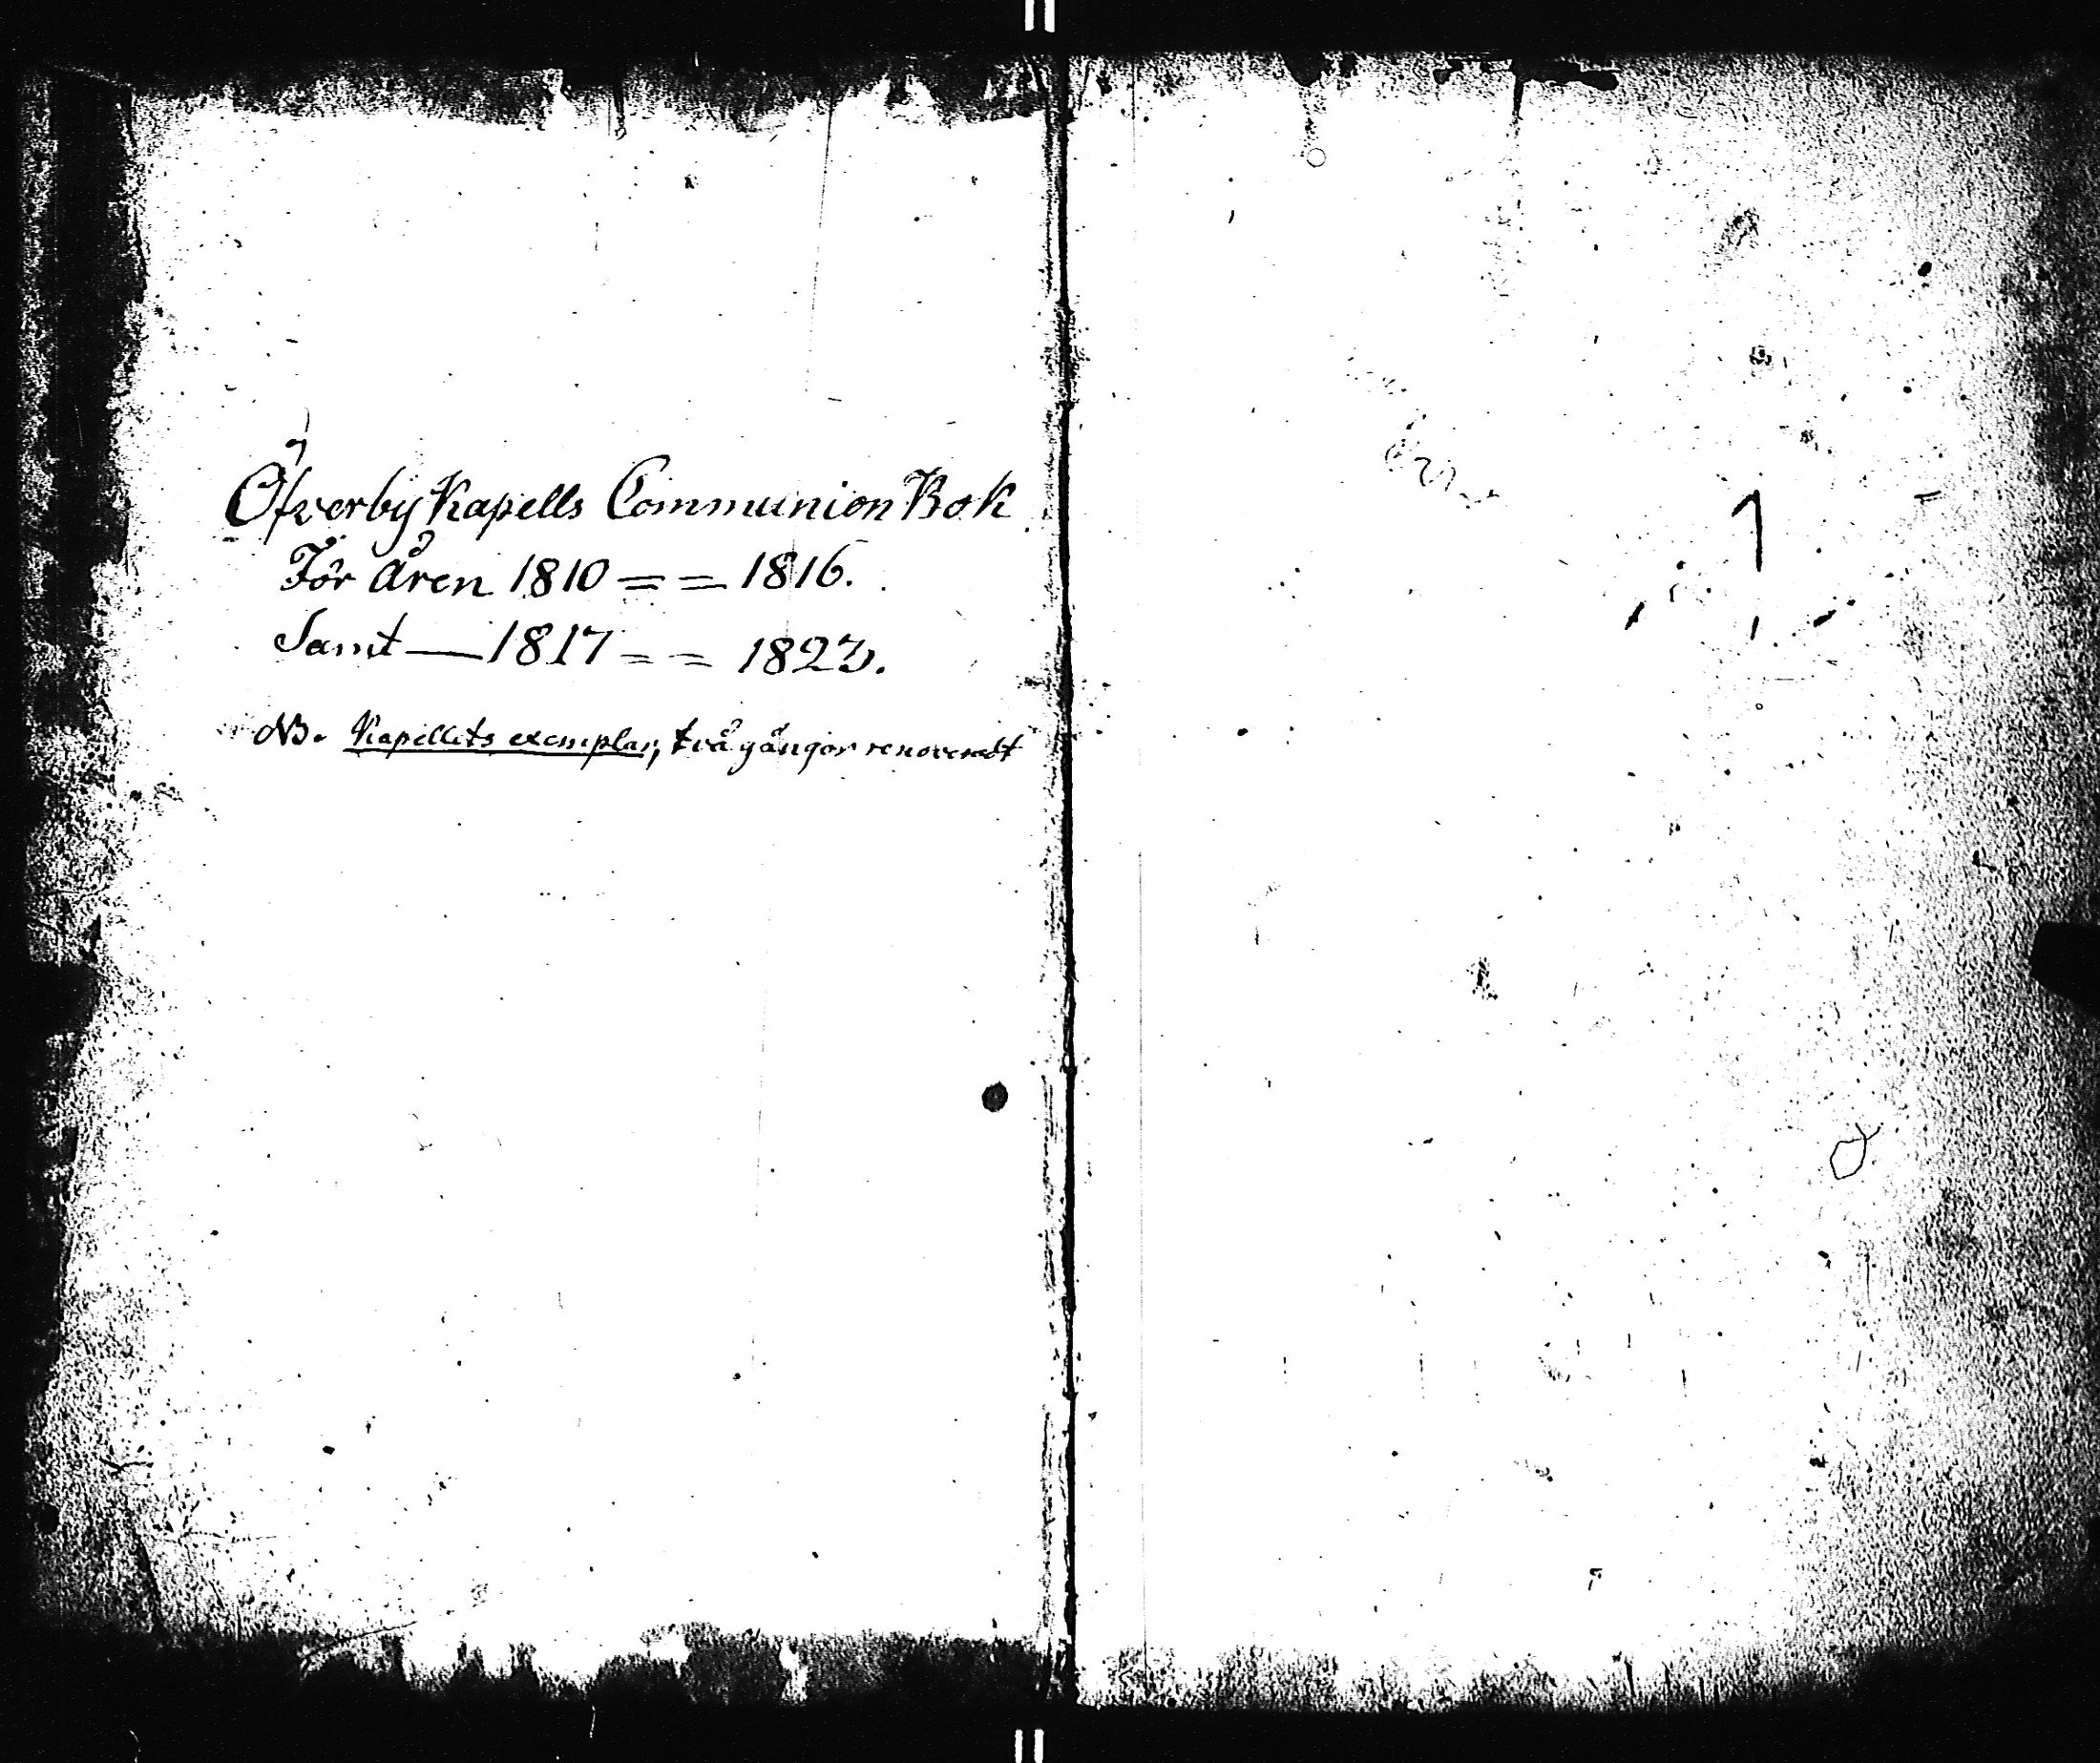 Öfverby Kapells Communion Bok
För Åren 1810 = = 1816.
Samt — 1817 = = 1823.
NB. Kapellets exemplar, två gångor renoveradt
1